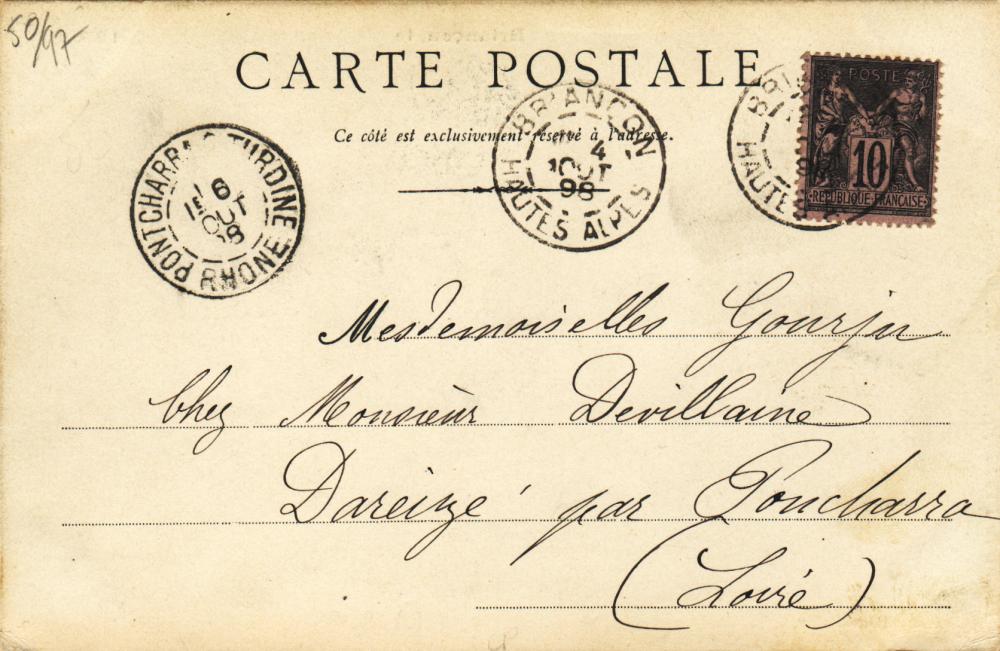 50/97
CARTE POSTALE
Ce côté est exclusivement réservé à l'adresse.
BRIANÇON
4
AOUT
98
HAUTES ALPES
BRI
HAUTES
POSTE
10
REPUBLIQUE FRANÇAISE
PONTCHARRA S TURDINE
6
AOUT
98
RHONE
Mesdemoiselles Gourju
chez Monsieur Devillaine
Dareizé par Poncharra
(Loire)